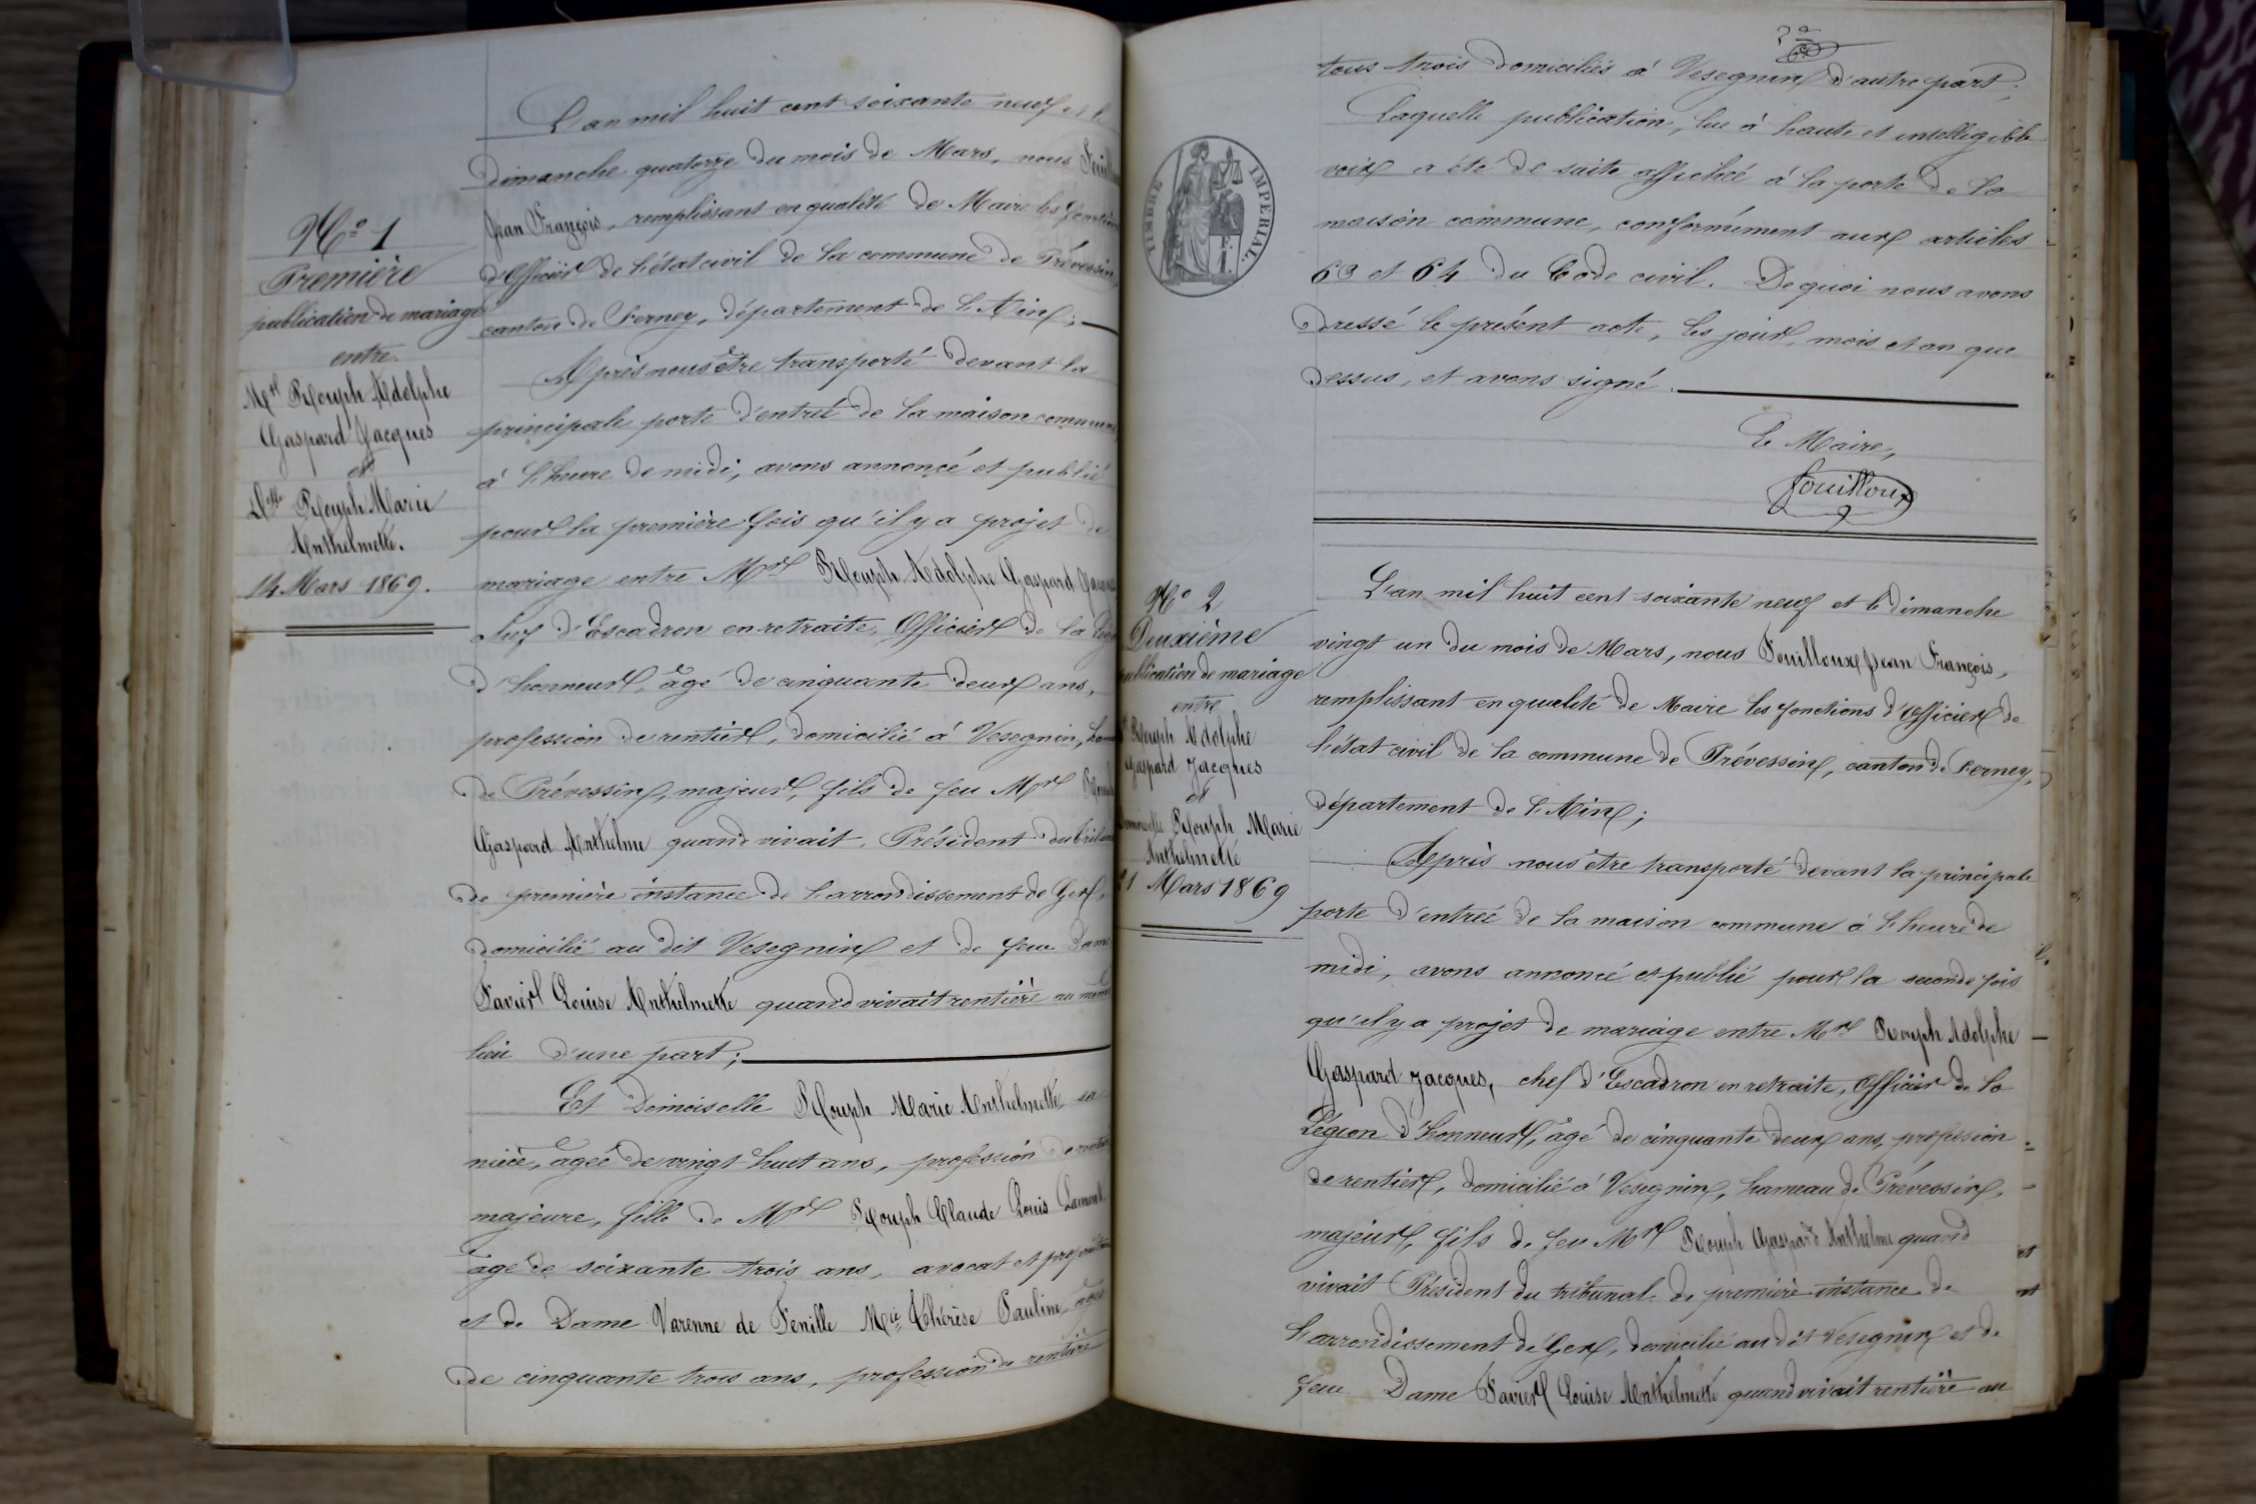 No 1
Première
publication de mariage
entre
Mr Rouph Adolphe
Gaspard Jacques
et
Dlle Rouph Marie
Anthelmette.
14 Mars 1869.
L'an mil huit cent soixante neuf et le
Dimanche quatorze du mois de Mars, nous
Jean François, remplissant en qualité de Maire les fonctions
d'Officier de l'état civil de la commune de Prévessin,
canton de Ferney, département de l'Ain;
Après nous être transporté devant la
principale porte d'entrée de la maison commune
à l'heure de midi, avons annoncé et publié
pour la première fois qu'il y a projet de
mariage entre Mr Rouph Adolphe Gaspard Jacques
chef d'Escadron en retraite, Officier de la
d'honneur, âgé de cinquante deux ans,
profession de rentier, domicilié à Vesegnin,
de Prévessin, majeur, fils de feu Mr
Gaspard Anthelme quand vivait Président du
de première instance de l'arrondissement de Gex,
domicilié au dit Vesegnin et de feu Dame
Favier Louise Anthelmette quand vivait rentière au même
lieu d'une part;
Et Demoiselle Rouph Marie Anthelmette sa
nièce, âgée de vingt huit ans, profession de
majeure, fille de Mr Rouph Claude Louis
âgé de soixante trois ans, avocat et
et de Dame Varenne de Fenille Mie Thérèse Pauline âgée
de cinquante trois ans, profession de rentière
tous trois domiciliés à Vesegnin d'autre part;
Laquelle publication, lue à haute et intelligible
voix a été de suite affichée à la porte de la
maison commune, conformément aux articles
63 et 64 du Code civil. De quoi nous avons
dressé le présent acte, les jour, mois et an que
dessus, et avons signé.
Le Maire,
Fouilloux
TIMBRE IMPERIAL
No 2
Deuxième
publication de mariage
entre
Rouph Adolphe
Gaspard Jacques
et
Rouph Marie
Anthelmette
21 Mars 1869
L'an mil huit cent soixante neuf et le dimanche
vingt un du mois de Mars, nous Fouilloux Jean François,
remplissant en qualité de Maire les fonctions d'Officier de
l'état civil de la commune de Prévessin, canton de Ferney,
département de l'Ain;
Après nous être transporté devant la principale
porte d'entrée de la maison commune à l'heure de
midi, avons annoncé et publié pour la seconde fois
qu'il y a projet de mariage entre Mr Rouph Adolphe
Gaspard Jacques, chef d'Escadron en retraite, Officier de la
Légion d'honneur, âgé de cinquante deux ans, profession
de rentier, domicilié à Vesegnin, hameau de Prévessin,
majeur, fils de feu Mr Rouph Gaspard Anthelme quand
vivait Président du tribunal de première instance de
l'arrondissement de Gex, domicilié au dit Vesegnin et de
feue Dame Favier Louise Anthelmette quand vivait rentière au